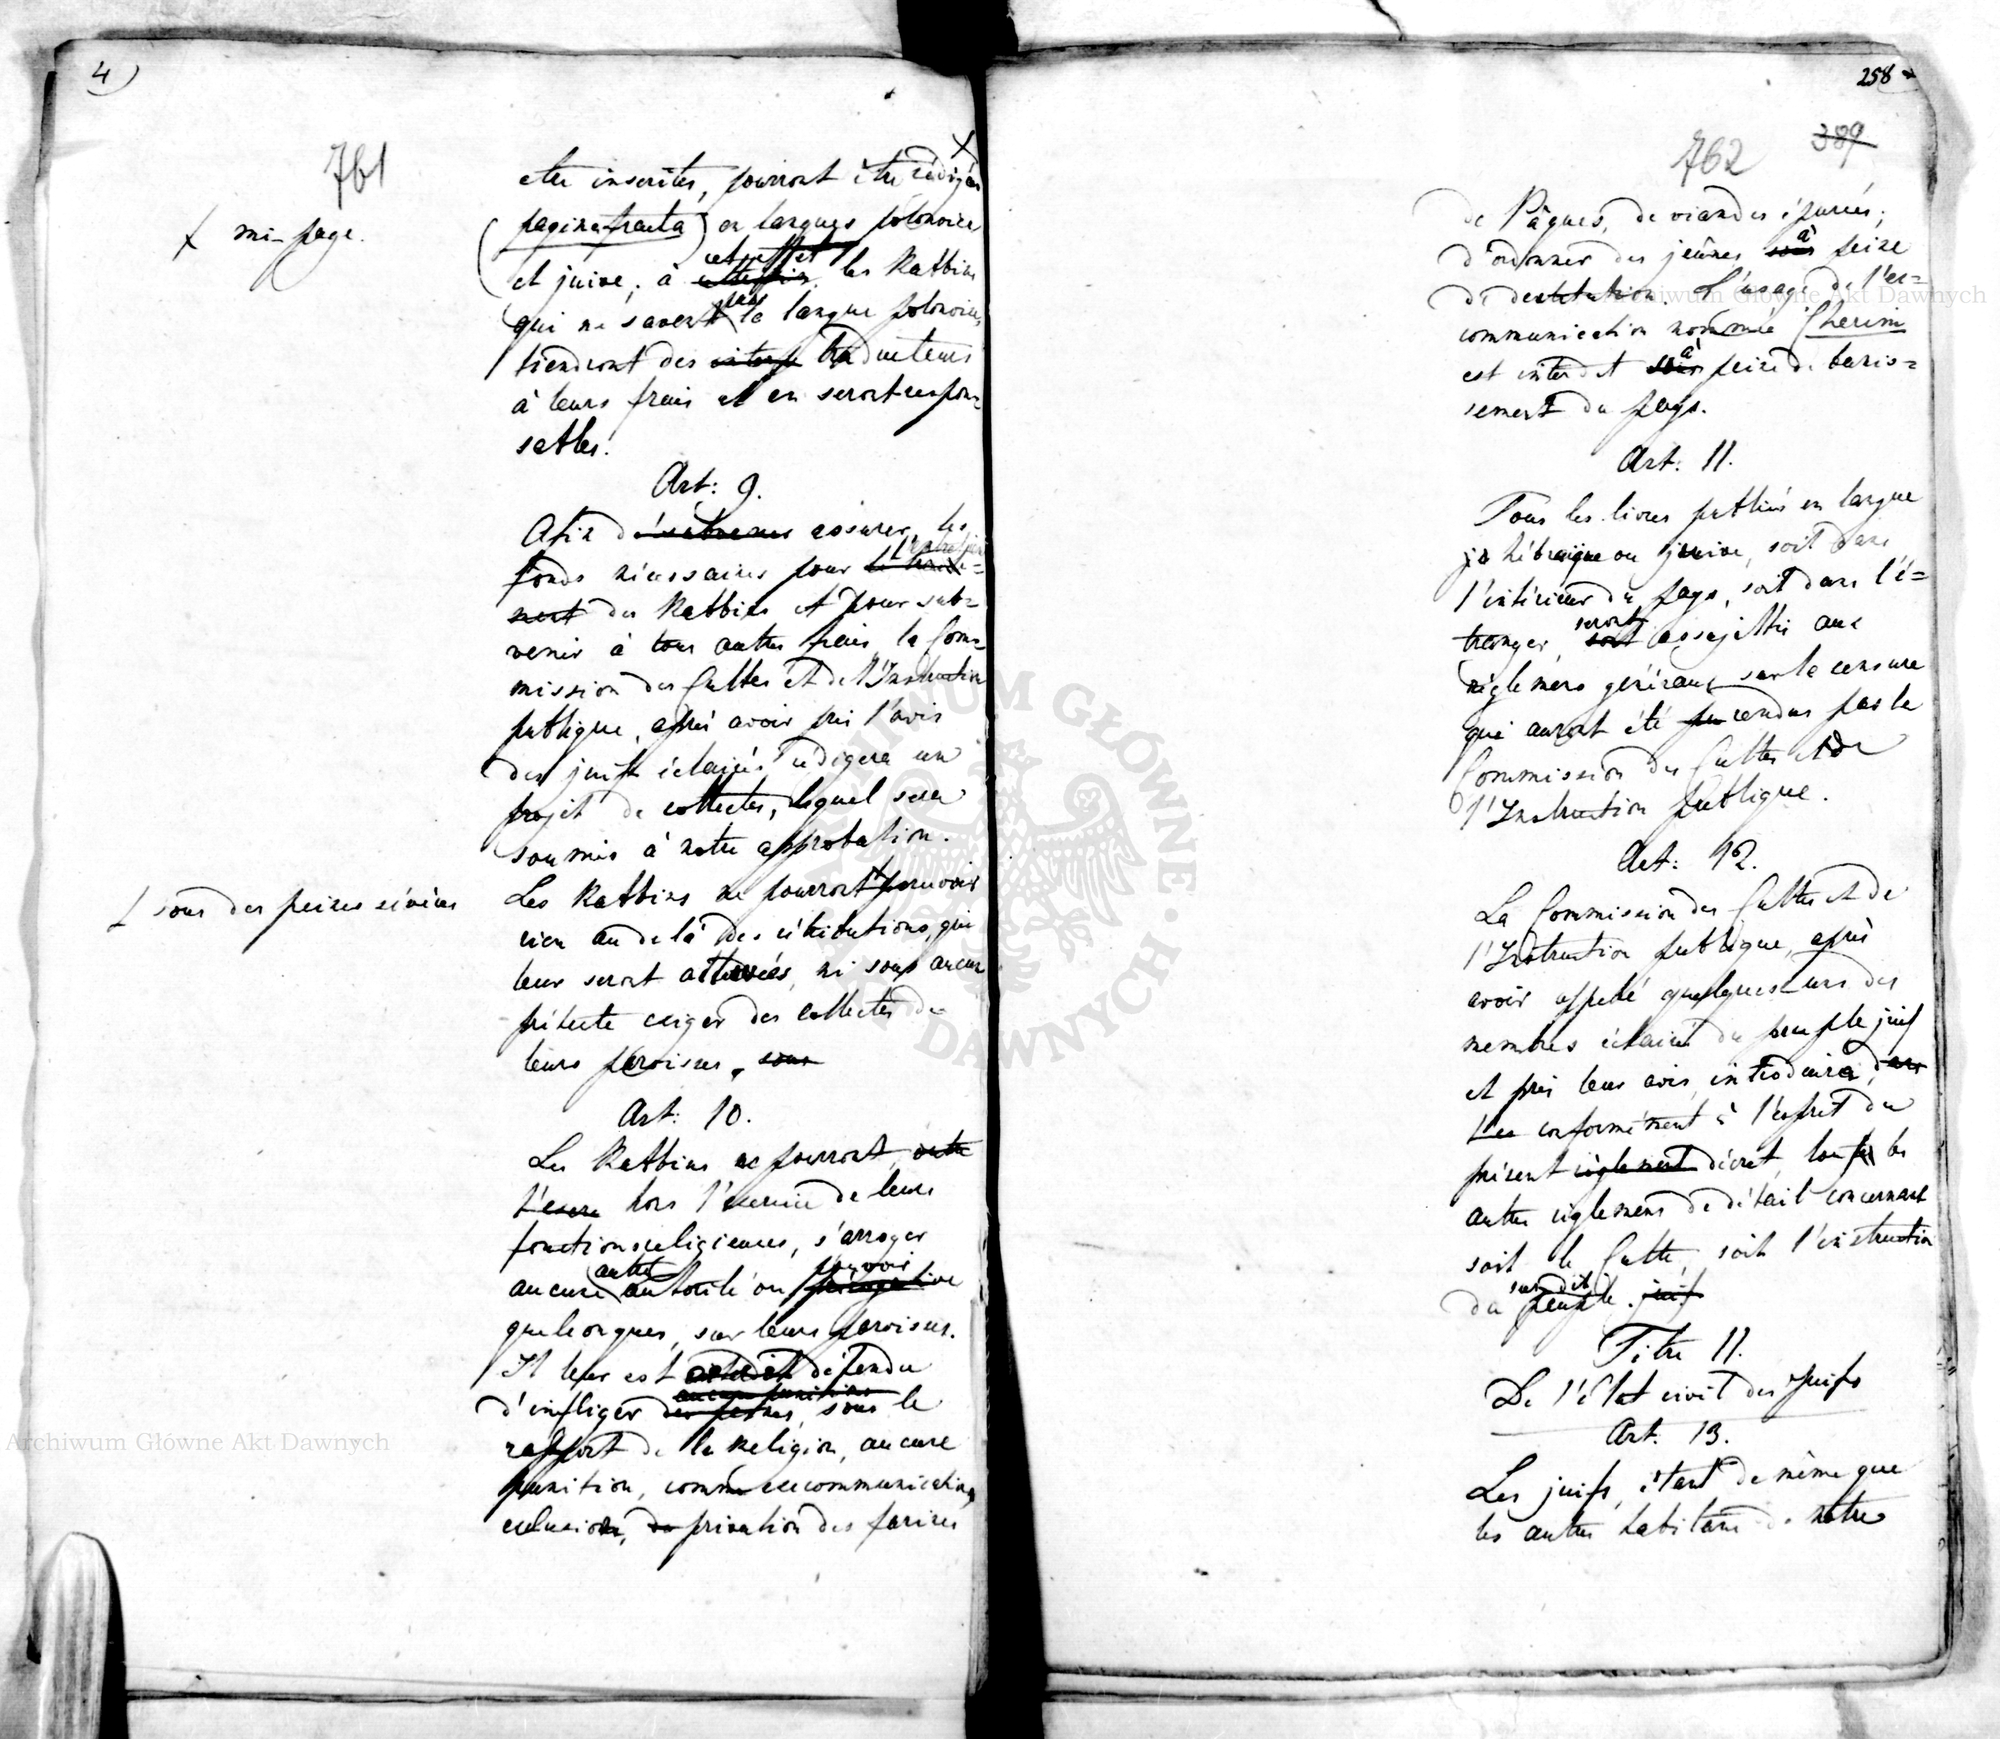 4)
761
+ mi-page.
etre inscrites, pourront être rédigées
(pagina fracta) en langues polonoise
et juive; à cet effet les Rabbins
qui ne savent pas la langue polonoise,
tiendront des interp traducteurs
à leurs frais et en seront respon=
sables.
Art: 9.
Afin d' assurer, les
fonds nécessaires pour l'entretien
ment des Rabbins et pour sub=
venir à tous autres frais, la Com=
mission des Cultes et de l'Instruction
publique, après avoir pri l'avis
des juifs éclairés rédigera un
projet de collectes, lequel sera
soumis à notre approbation.
+ sous des peines sévères
Les Rabbins ne pourront + percevoir
rien au delà des rétributions, qui
leur seront attribuées, ni sous aucun
prétexte exiger des collectes de
leurs paroisses, sous
Art: 10.
Les Rabbins ne pourront, outre
l'exerc hors l'exercice de leurs
fonctions religieuses, s'arroger
aucune autre autorité ou pouvoir prérogative
quelconques, sur leurs paroisses.
Il leur est interdit défendu
d'infliger des peines, aucune punition sous le
rapport de la Religion, aucune
punition, comme excommunication,
exclusion, de privation des farines
258
389
762
de Pâques, de viandes épurées;
d'ordonner des jeûnes sous à peine
de destitution. L'usage de l'ex=
communication nommée Cherim
est interdit sous à peine de banis=
sement du pays.
Art: 11.
Tous les livres publiés en langue
ju hébraïque ou juive, soit dans
l'intérieur du pays, soit dans l'é=
tranger, seront sont assujettis aux
règlemens généraux sur la censure
qui auront été pu rendus par la
Commission des Cultes et de
l'Instruction publique.
Art: 12.
La Commission des Cultes et de
l'Instruction publique, après
avoir appelé quelques-uns des
membres éclairés du peuple juif
et pris leur avis, introduira, dans
l'es conformément à l'esprit du
présent règlement décret, tous les
autres règlemens de détail concernant
soit le Culte, soit l'instruction
du susdit peuple. juif
Titre II.
De l'état civil des Juifs
Art. 13.
Les juifs, étant de même que
les autres habitans de notre
Archiwum Główne Akt Dawnych
Archiwum Główne Akt Dawnych
ARCHIWUM GŁÓWNE · AKT DAWNYCH ·